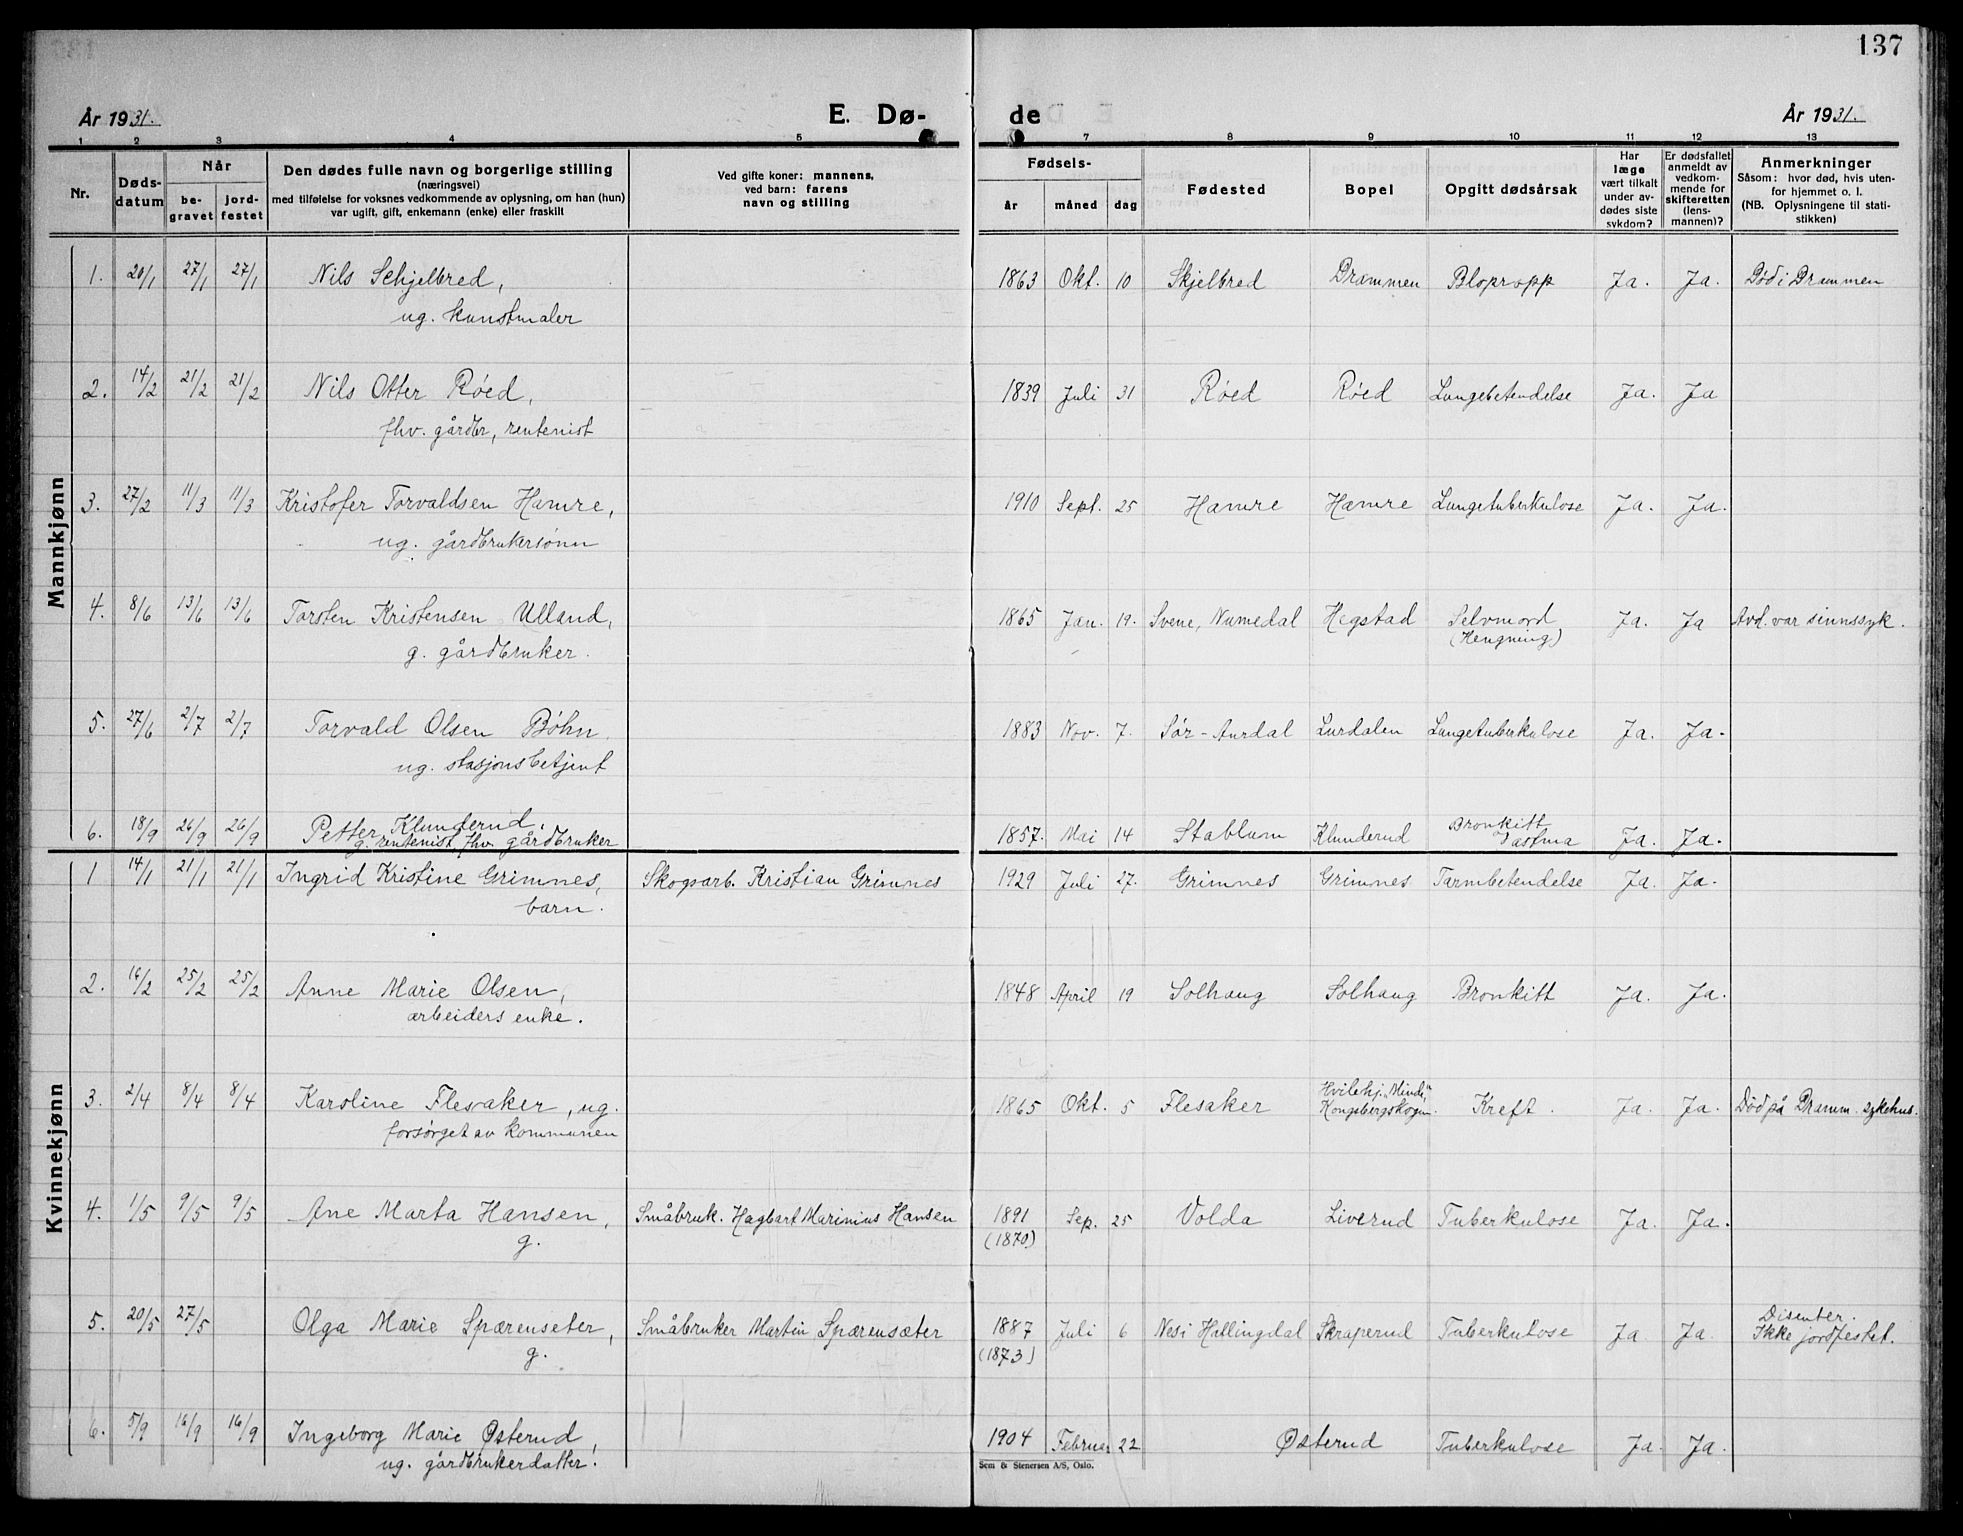 137
År 1931.
E. Dø-
de
År 1931.
1 2 3 4 5 7 8 9 10 11 12 13
Nr.
Døds-
datum
Når
be-
gravet
jord-
festet
Den dødes fulle navn og borgerlige stilling
(næringsvei)
med tilføielse for voksnes vedkommende av oplysning, om han (hun)
var ugift, gift, enkemann (enke) eller fraskilt
Ved gifte koner: mannens,
ved barn: farens
navn og stilling
Fødsels-
år måned dag
Fødested
Bopel
Opgitt dødsårsak
Har
læge
vært tilkalt
under av-
dødes siste
sykdom?
Er dødsfallet
anmeldt av
vedkom-
mende for
skifteretten
(lens-
mannen)?
Anmerkninger
Såsom: hvor død, hvis uten-
for hjemmet o. l.
(NB. Oplysningene til stati-
stikken)
Mannkjønn
1. 20/1 27/1 27/1 Nils Schjelbred, 1863 Okt. 10 Skjelbred Drammen Blopropp Ja. Ja. Død i Drammen
ug. kunstmaler
2. 14/2 21/2 21/2 Nils Otter Røed, 1839 Juli 31 Røed Røed Lungebetendelse Ja. Ja
fhv. gårdbr, rentenist
3. 27/2 11/3 11/3 Kristofer Torvaldsen Hamre, 1910 Sept. 25 Hamre Hamre Lungetuberkulose Ja. Ja.
ug. gårdbrukersønn
4. 8/6 13/6 13/6 Torsten Kristensen Ulland, 1865 Jan. 19. Svene, Numedal Hegstad Selvmord Ja. Ja Avd. var sinnssyk.
g. gårdbruker. (Hengning)
5. 27/6 2/7 2/7 Torvald Olsen Bøhn. 1883 Nov. 7. Sør-Aurdal Lurdalen Lungetuberkulose Ja. Ja.
ug. stasjonsbetjent
6. 18/9 26/9 26/9 Petter Klunderud, 1857. Mai 14 Stablum Klunderud Bronkitt Ja. Ja.
g. rentenist fhv. gårdbruker astma
Kvinnekjønn
1 14/1 21/1 21/1 Ingrid Kristine Grimnes, Skogsarb. Kristian Grimnes 1929 Juli 27. Grimnes Grimnes Tarmbetendelse Ja. Ja.
barn.
2. 16/2 25/2 25/2 Anne Marie Olsen, 1848 April 19 Solhaug Solhaug Bronkitt Ja. Ja.
arbeiders enke.
3. 2/4 8/4 8/4 Karoline Flesaker, ug. 1865 Okt. 5 Flesaker Hvilehj. "Minde", Kongsbergskogen. Kreft. Ja. Ja. Død på Dramm. sykehus.
forsørget av kommunen
4. 1/5 9/5 9/5 Ane Marta Hansen, Småbruk. Hagbart Marinius Hansen 1891 Sep. 25 Volda Liverud Tuberkulose Ja. Ja.
g. (1870)
5. 20/5 27/5 Olga Marie Spærenseter, Småbruker Martin Spærensæter 1887 Juli 6 Nes i Hallingdal Skraperud Tuberkulose Ja Ja. Disenter.
g. (1873) Ikke jordfestet.
6. 5/9 16/9 16/9 Ingeborg Marie Østerud, 1904 Februar 22 Østerud Tuberkulose Ja. Ja.
ug. gårdbrukerdatter.
Sem & Stenersen A/S, Oslo.